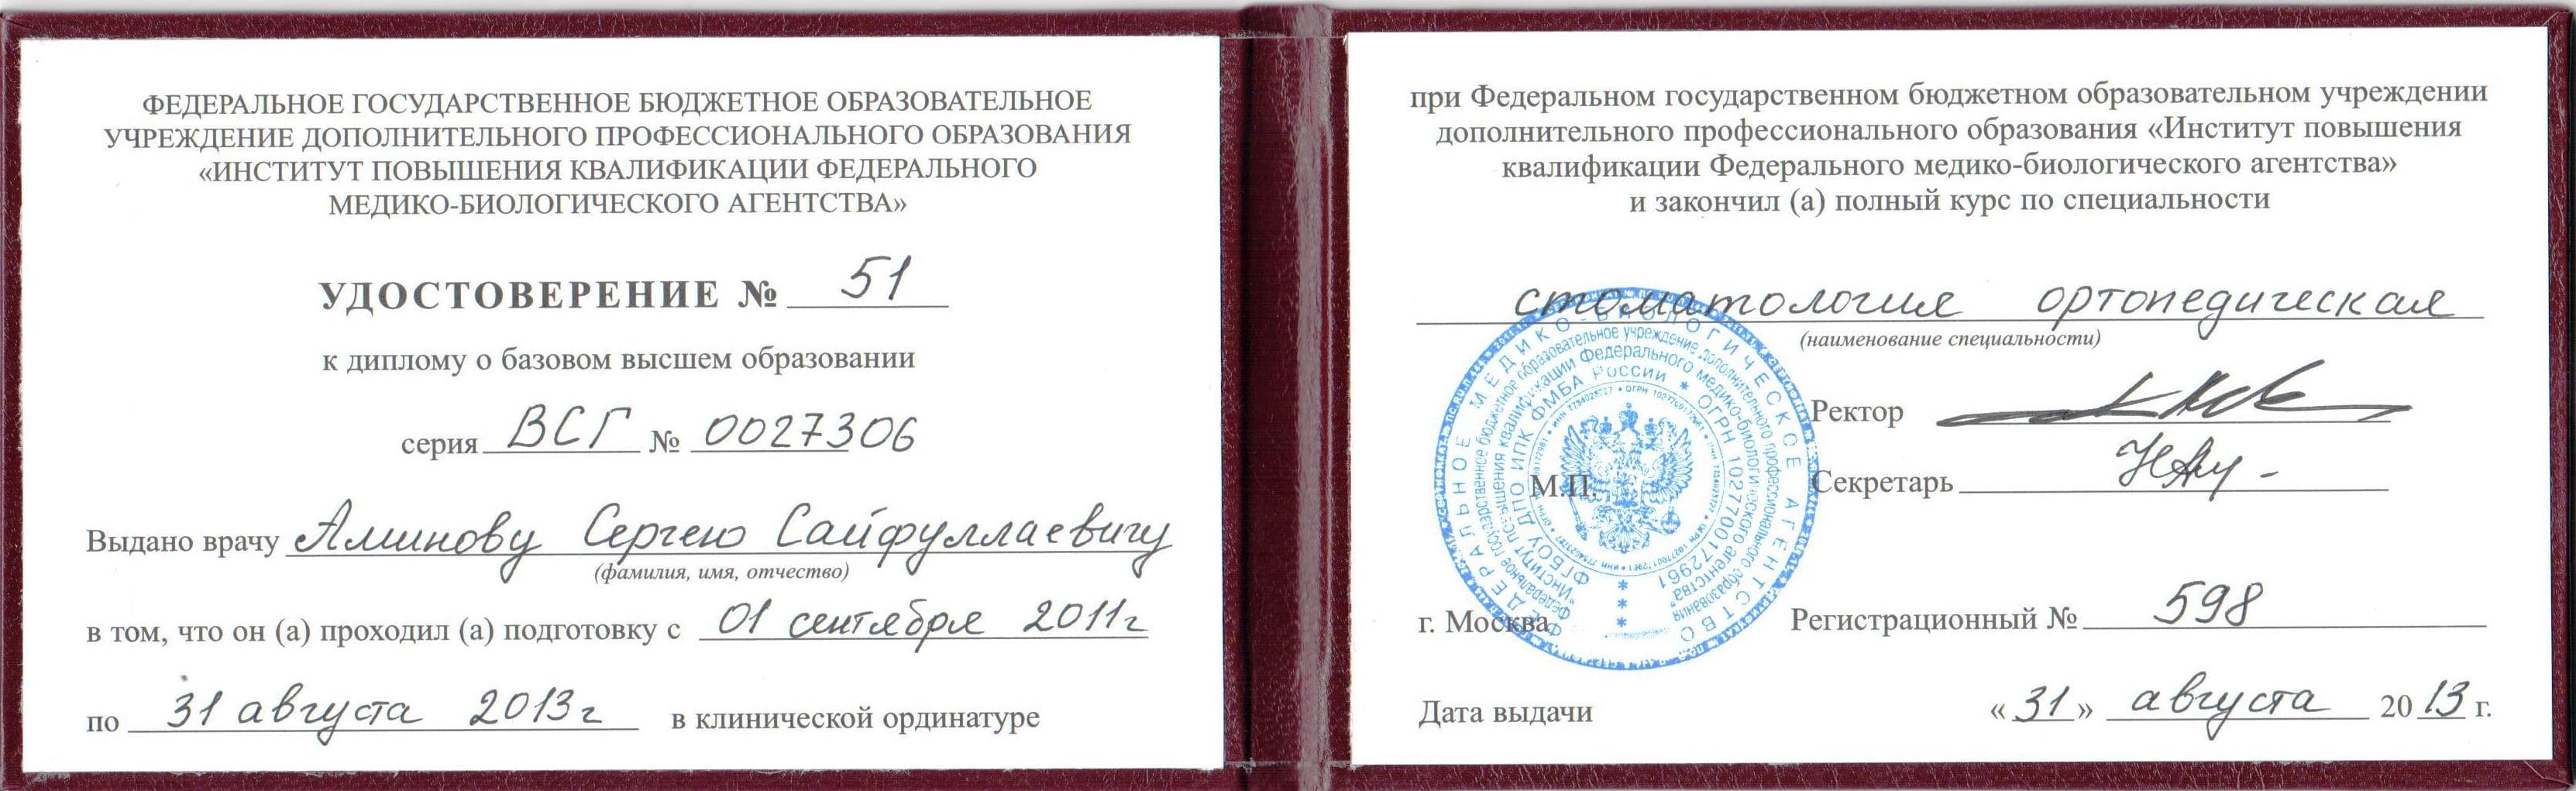 ФЕДЕРАЛЬНОЕ ГОСУДАРСТВЕННОЕ БЮДЖЕТНОЕ ОБРАЗОВАТЕЛЬНОЕ
УЧРЕЖДЕНИЕ ДОПОЛНИТЕЛЬНОГО ПРОФЕССИОНАЛЬНОГО ОБРАЗОВАНИЯ
«ИНСТИТУТ ПОВЫШЕНИЯ КВАЛИФИКАЦИИ ФЕДЕРАЛЬНОГО
МЕДИКО-БИОЛОГИЧЕСКОГО АГЕНТСТВА»
УДОСТОВЕРЕНИЕ № 51
к диплому о базовом высшем образовании
серия ВСГ № 0027306
Выдано врачу Аминову Сергею Сайфуллаевичу
(фамилия, имя, отчество)
в том, что он (а) проходил (а) подготовку с 01 сентября 2011г
по 31 августа 2013г в клинической ординатуре
при Федеральном государственном бюджетном образовательном учреждении
дополнительного профессионального образования «Институт повышения
квалификации Федерального медико-биологического агентства»
и закончил (а) полный курс по специальности
стоматология ортопедическая
(наименование специальности)
Ректор
М.П.
Секретарь
г. Москва
Регистрационный № 598
Дата выдачи «31» августа 2013 г.
ФЕДЕРАЛЬНОЕ МЕДИКО-БИОЛОГИЧЕСКОЕ АГЕНТСТВО
Федеральное государственное бюджетное образовательное учреждение дополнительного профессионального образования
"Институт повышения квалификации Федерального медико-биологического агентства"
ФГБОУ ДПО ИПК ФМБА РОССИИ * ОГРН 1027700172961